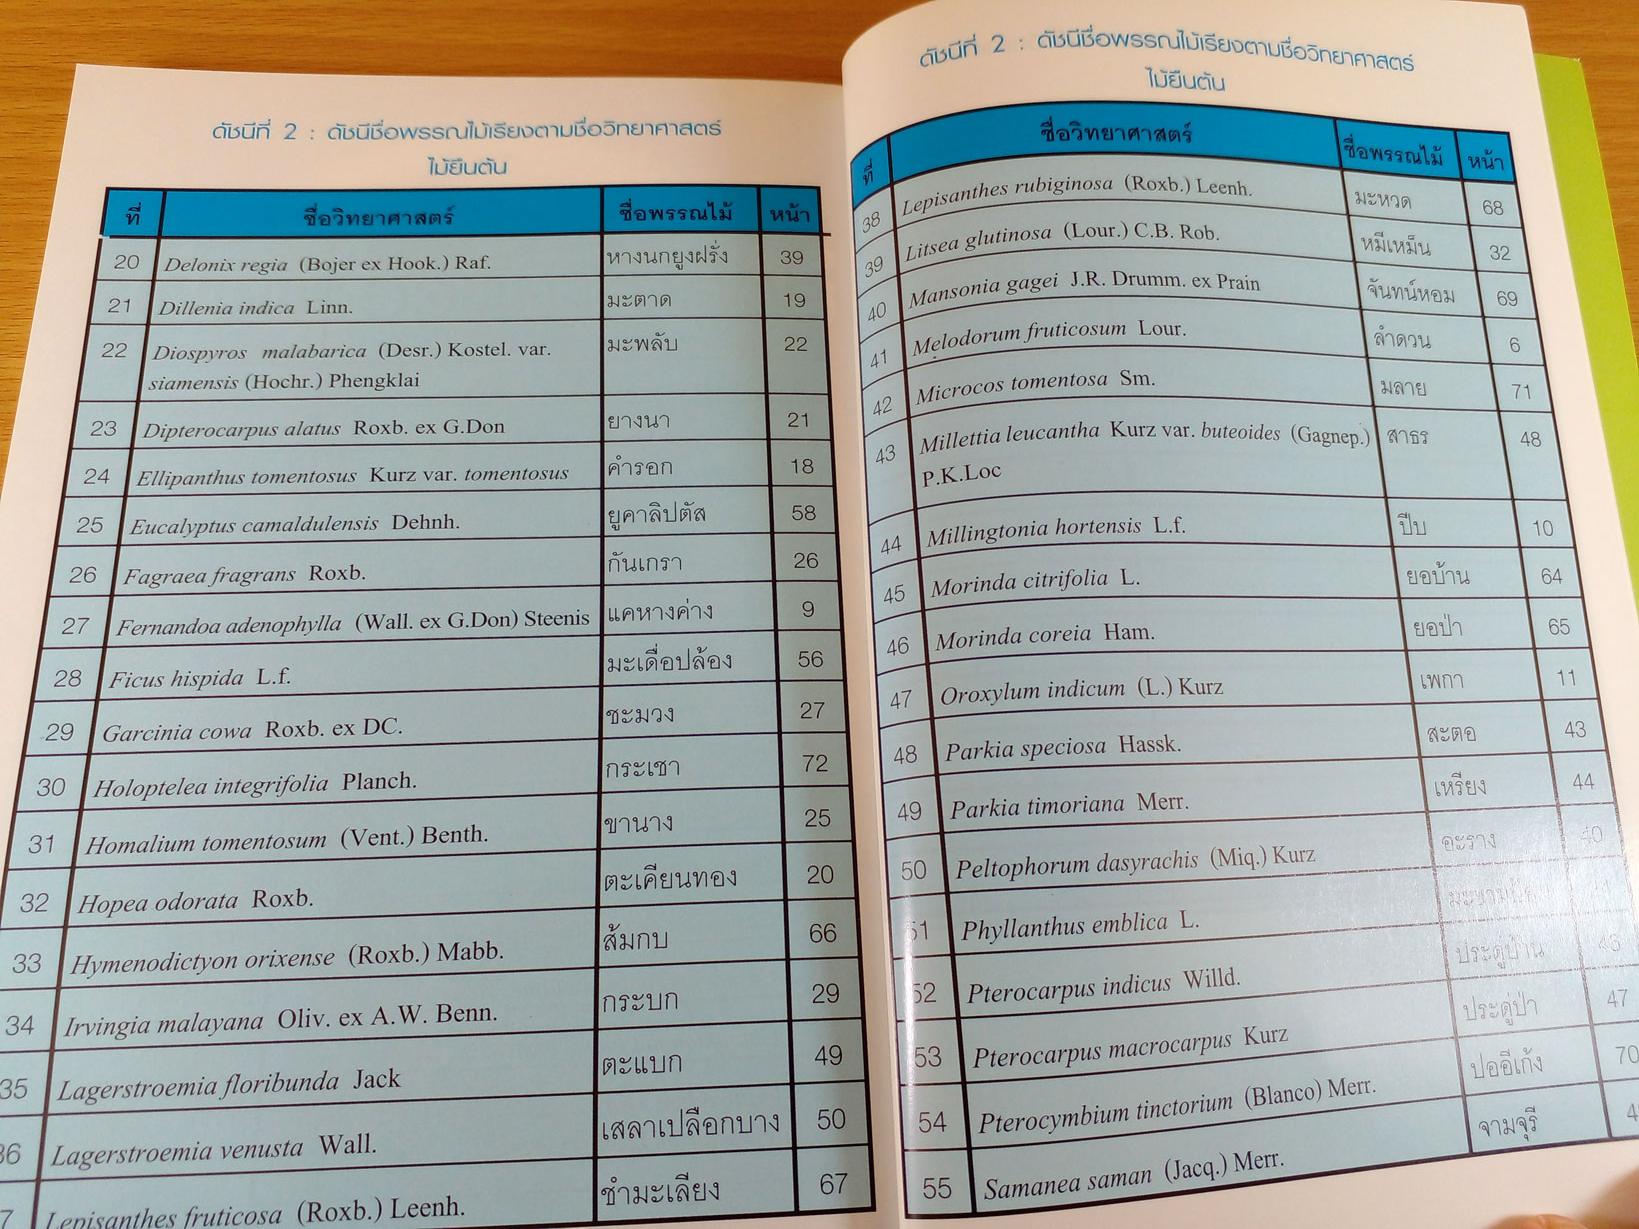 ดัชนีที่ 2 : ดัชนีชื่อพรรณไม้เรียงตามชื่อวิทยาศาสตร์
ไม้ยืนต้น
ที่ ชื่อวิทยาศาสตร์ ชื่อพรรณไม้ หน้า
20 Delonix regia (Bojer ex Hook.) Raf. หางนกยูงฝรั่ง 39
21 Dillenia indica Linn. มะตาด 19
22 Diospyros malabarica (Desr.) Kostel. var. มะพลับ 22
siamensis (Hochr.) Phengklai
23 Dipterocarpus alatus Roxb. ex G.Don ยางนา 21
24 Ellipanthus tomentosus Kurz var. tomentosus คำรอก 18
25 Eucalyptus camaldulensis Dehnh. ยูคาลิปตัส 58
26 Fagraea fragrans Roxb. กันเกรา 26
27 Fernandoa adenophylla (Wall. ex G.Don) Steenis แคหางค่าง 9
28 Ficus hispida L.f. มะเดื่อปล้อง 56
29 Garcinia cowa Roxb. ex DC. ชะมวง 27
30 Holoptelea integrifolia Planch. กระเชา 72
31 Homalium tomentosum (Vent.) Benth. ขานาง 25
32 Hopea odorata Roxb. ตะเคียนทอง 20
33 Hymenodictyon orixense (Roxb.) Mabb. ส้มกบ 66
34 Irvingia malayana Oliv. ex A.W. Benn. กระบก 29
35 Lagerstroemia floribunda Jack ตะแบก 49
36 Lagerstroemia venusta Wall. เสลาเปลือกบาง 50
7 Lepisanthes fruticosa (Roxb.) Leenh. ชำมะเลียง 67
ดัชนีที่ 2 : ดัชนีชื่อพรรณไม้เรียงตามชื่อวิทยาศาสตร์
ไม้ยืนต้น
ที่ ชื่อวิทยาศาสตร์ ชื่อพรรณไม้ หน้า
38 Lepisanthes rubiginosa (Roxb.) Leenh. มะหวด 68
39 Litsea glutinosa (Lour.) C.B. Rob. หมีเหม็น 32
40 Mansonia gagei J.R. Drumm. ex Prain จันทน์หอม 69
41 Melodorum fruticosum Lour. ลำดวน 6
42 Microcos tomentosa Sm. มลาย 71
43 Millettia leucantha Kurz var. buteoides (Gagnep.) สาธร 48
P.K.Loc
44 Millingtonia hortensis L.f. ปีบ 10
45 Morinda citrifolia L. ยอบ้าน 64
46 Morinda coreia Ham. ยอป่า 65
47 Oroxylum indicum (L.) Kurz เพกา 11
48 Parkia speciosa Hassk. สะตอ 43
49 Parkia timoriana Merr. เหรียง 44
50 Peltophorum dasyrachis (Miq.) Kurz อะราง 40
51 Phyllanthus emblica L.
52 Pterocarpus indicus Willd. ประดู่บ้าน 46
53 Pterocarpus macrocarpus Kurz ประดู่ป่า 47
54 Pterocymbium tinctorium (Blanco) Merr. ปออีเก้ง 70
55 Samanea saman (Jacq.) Merr. จามจุรี